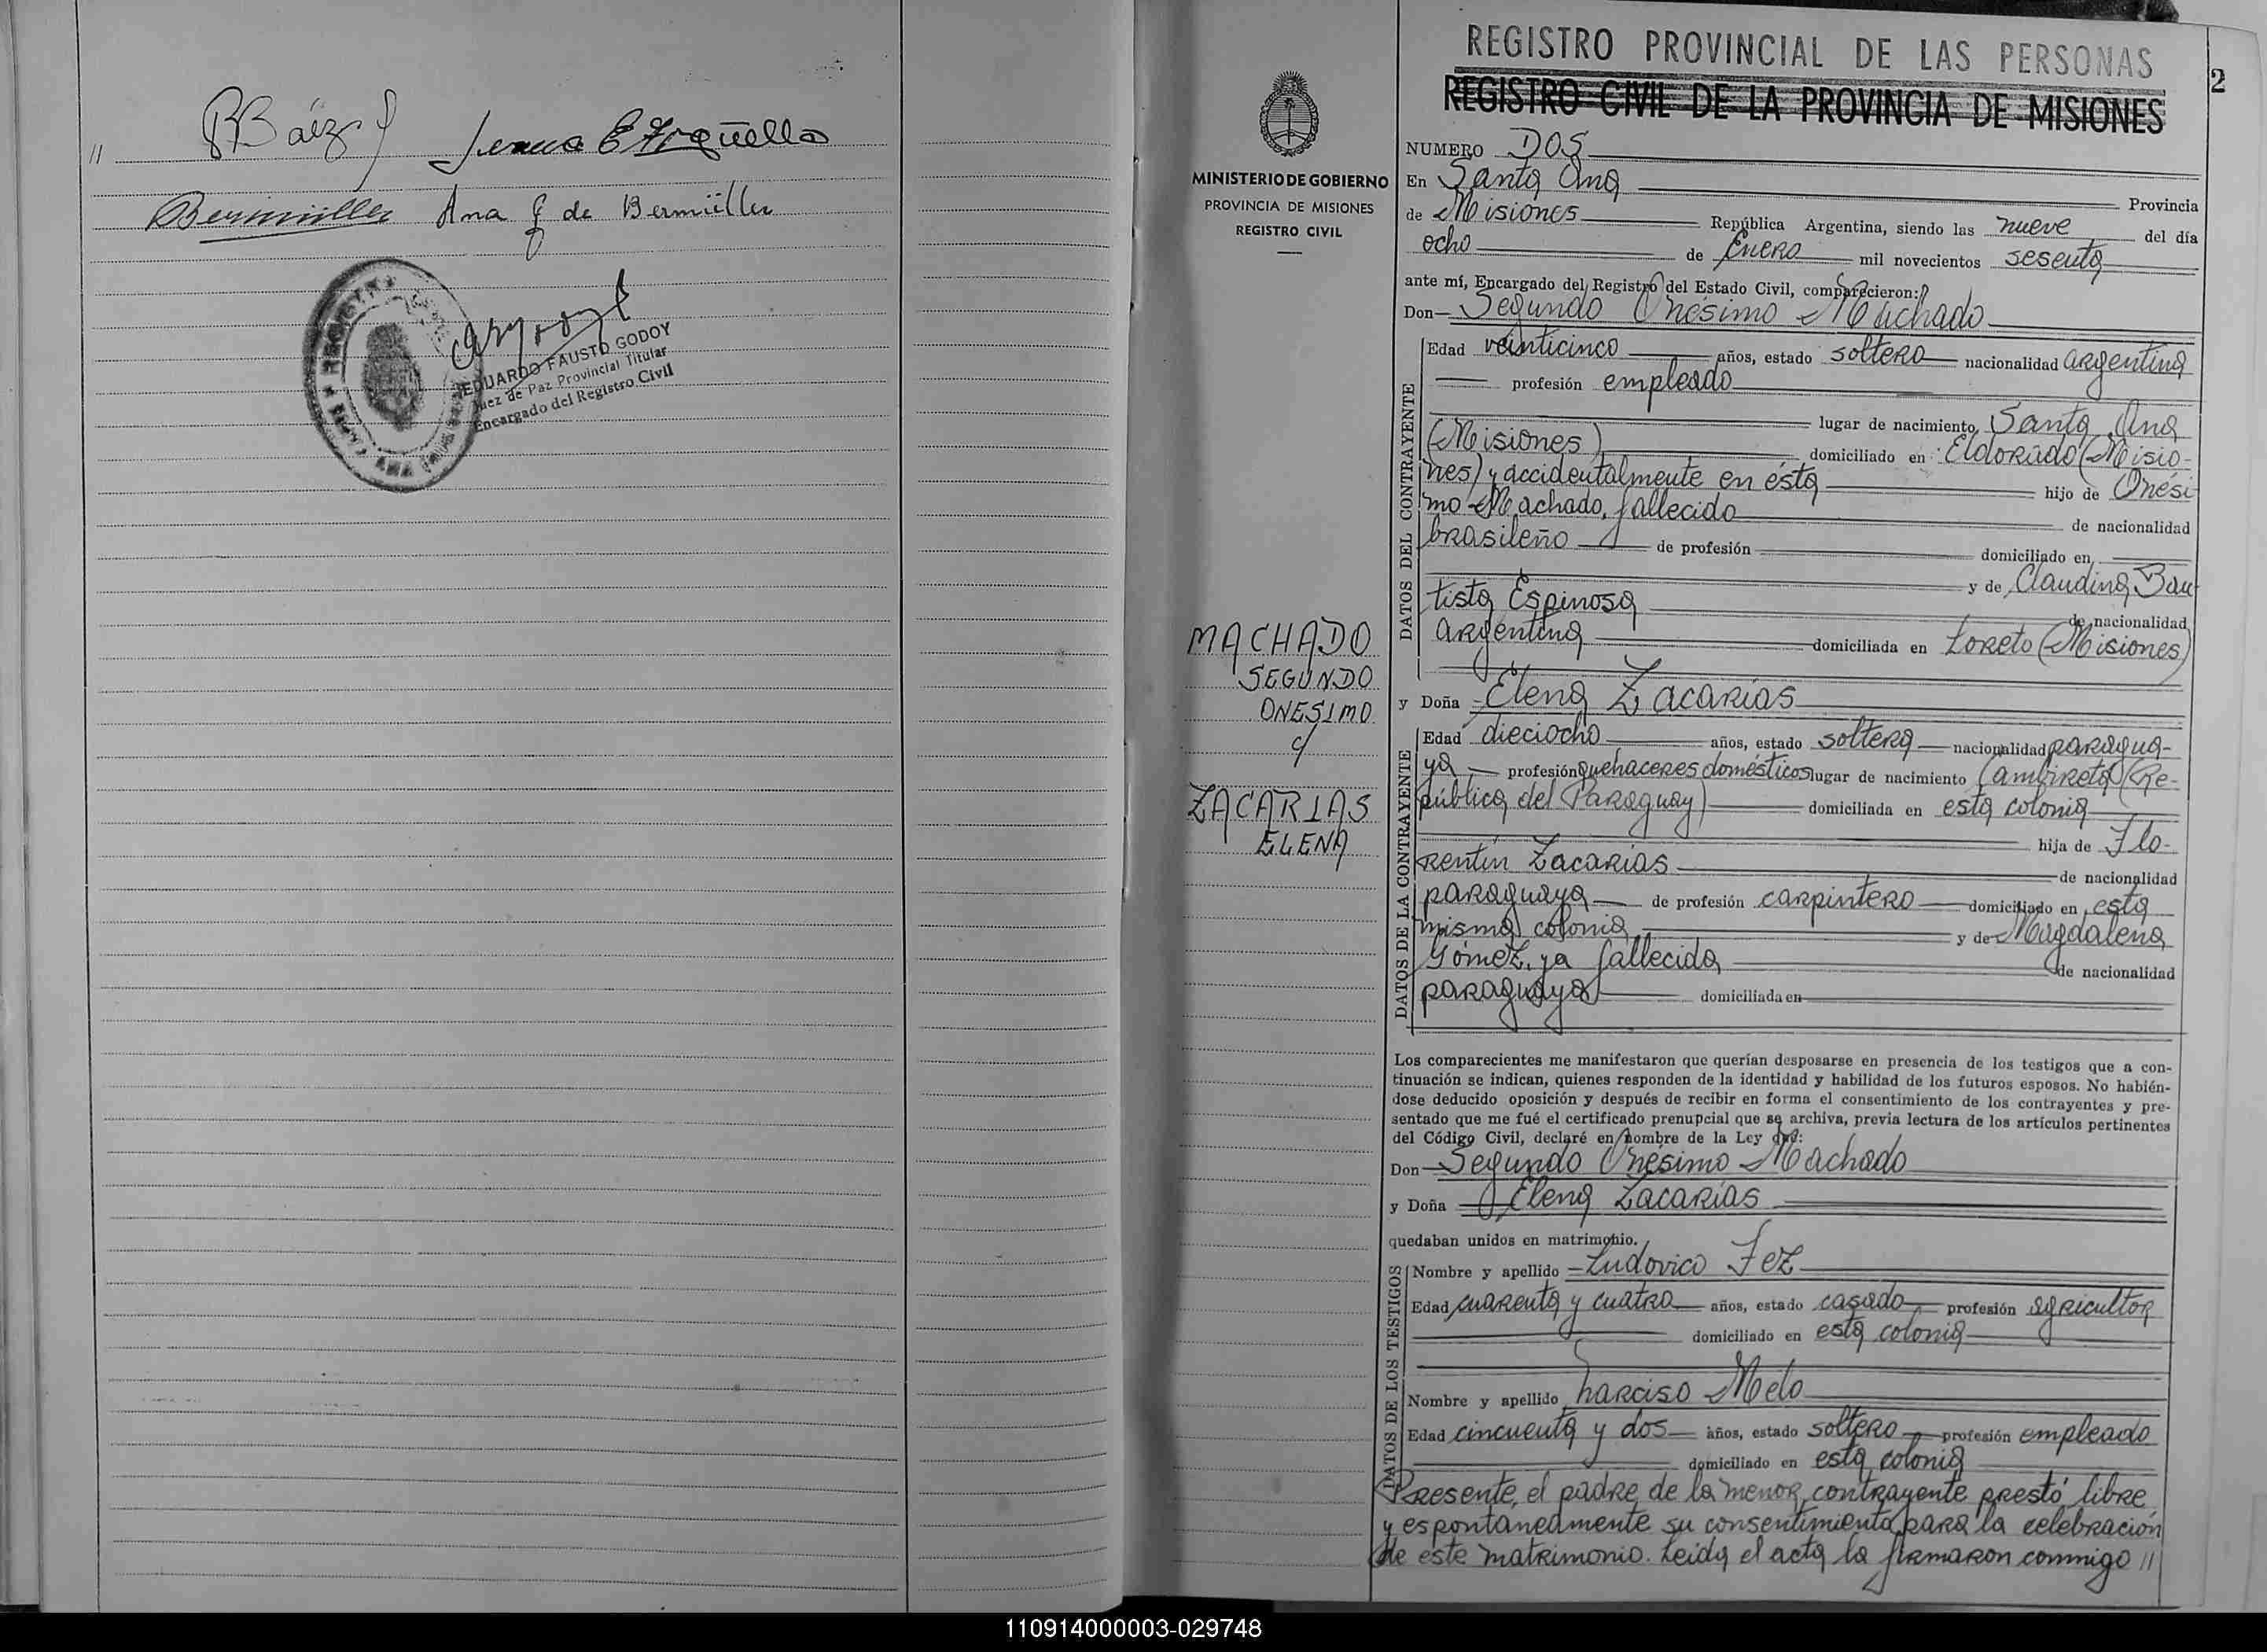 //
RBáez
Juana E
Bermüller Ana F de Bermüller
EDUARDO FAUSTO GODOY
Juez de Paz Provincial Titular
Encargado del Registro Civil
REGISTRO PROVINCIAL DE LAS PERSONAS
REGISTRO CIVIL DE LA PROVINCIA DE MISIONES
2
MINISTERIO DE GOBIERNO
PROVINCIA DE MISIONES
REGISTRO CIVIL
MACHADO
SEGUNDO
ONESIMO
c/
ZACARIAS
ELENA
NUMERO DOS
En Santa Ana Provincia
de Misiones República Argentina, siendo las nueve del día
ocho de Enero mil novecientos sesenta
ante mí, Encargado del Registro del Estado Civil, comparecieron:
Don Segundo Onésimo Machado
DATOS DEL CONTRAYENTE
Edad veinticinco años, estado soltero nacionalidad argentina
profesión empleado
lugar de nacimiento Santa Ana
(Misiones) domiciliado en Eldorado (Misio-
nes) y accidentalmente en ésta hijo de Onési-
mo Machado, fallecido de nacionalidad
brasileño de profesión domiciliado en
y de Claudina Bau-
tista Espinosa de nacionalidad
argentina domiciliada en Loreto (Misiones)
y Doña Elena Zacarías
DATOS DE LA CONTRAYENTE
Edad dieciocho años, estado soltera nacionalidad paragua-
ya profesión quehaceres domésticos lugar de nacimiento Cambiretá (Re-
pública del Paraguay) domiciliada en esta colonia
hija de Flo-
rentín Zacarías de nacionalidad
paraguaya de profesión carpintero domiciliado en esta
misma colonia y de Magdalena
Gómez, ya fallecida de nacionalidad
paraguaya domiciliada en
Los comparecientes me manifestaron que querían desposarse en presencia de los testigos que a con-
tinuación se indican, quienes responden de la identidad y habilidad de los futuros esposos. No habién-
dose deducido oposición y después de recibir en forma el consentimiento de los contrayentes y pre-
sentado que me fué el certificado prenupcial que se archiva, previa lectura de los artículos pertinentes
del Código Civil, declaré en nombre de la Ley que:
Don Segundo Onésimo Machado
y Doña Elena Zacarías
quedaban unidos en matrimonio.
DATOS DE LOS TESTIGOS
Nombre y apellido Ludovico Fez
Edad cuarenta y cuatro años, estado casado profesión agricultor
domiciliado en esta colonia
Nombre y apellido Narciso Melo
Edad cincuenta y dos años, estado soltero profesión empleado
domiciliado en esta colonia
Presente, el padre de la menor contrayente prestó libre
y espontaneamente su consentimiento para la celebración
de este matrimonio. Leida el acta la firmaron conmigo //
110914000003-029748